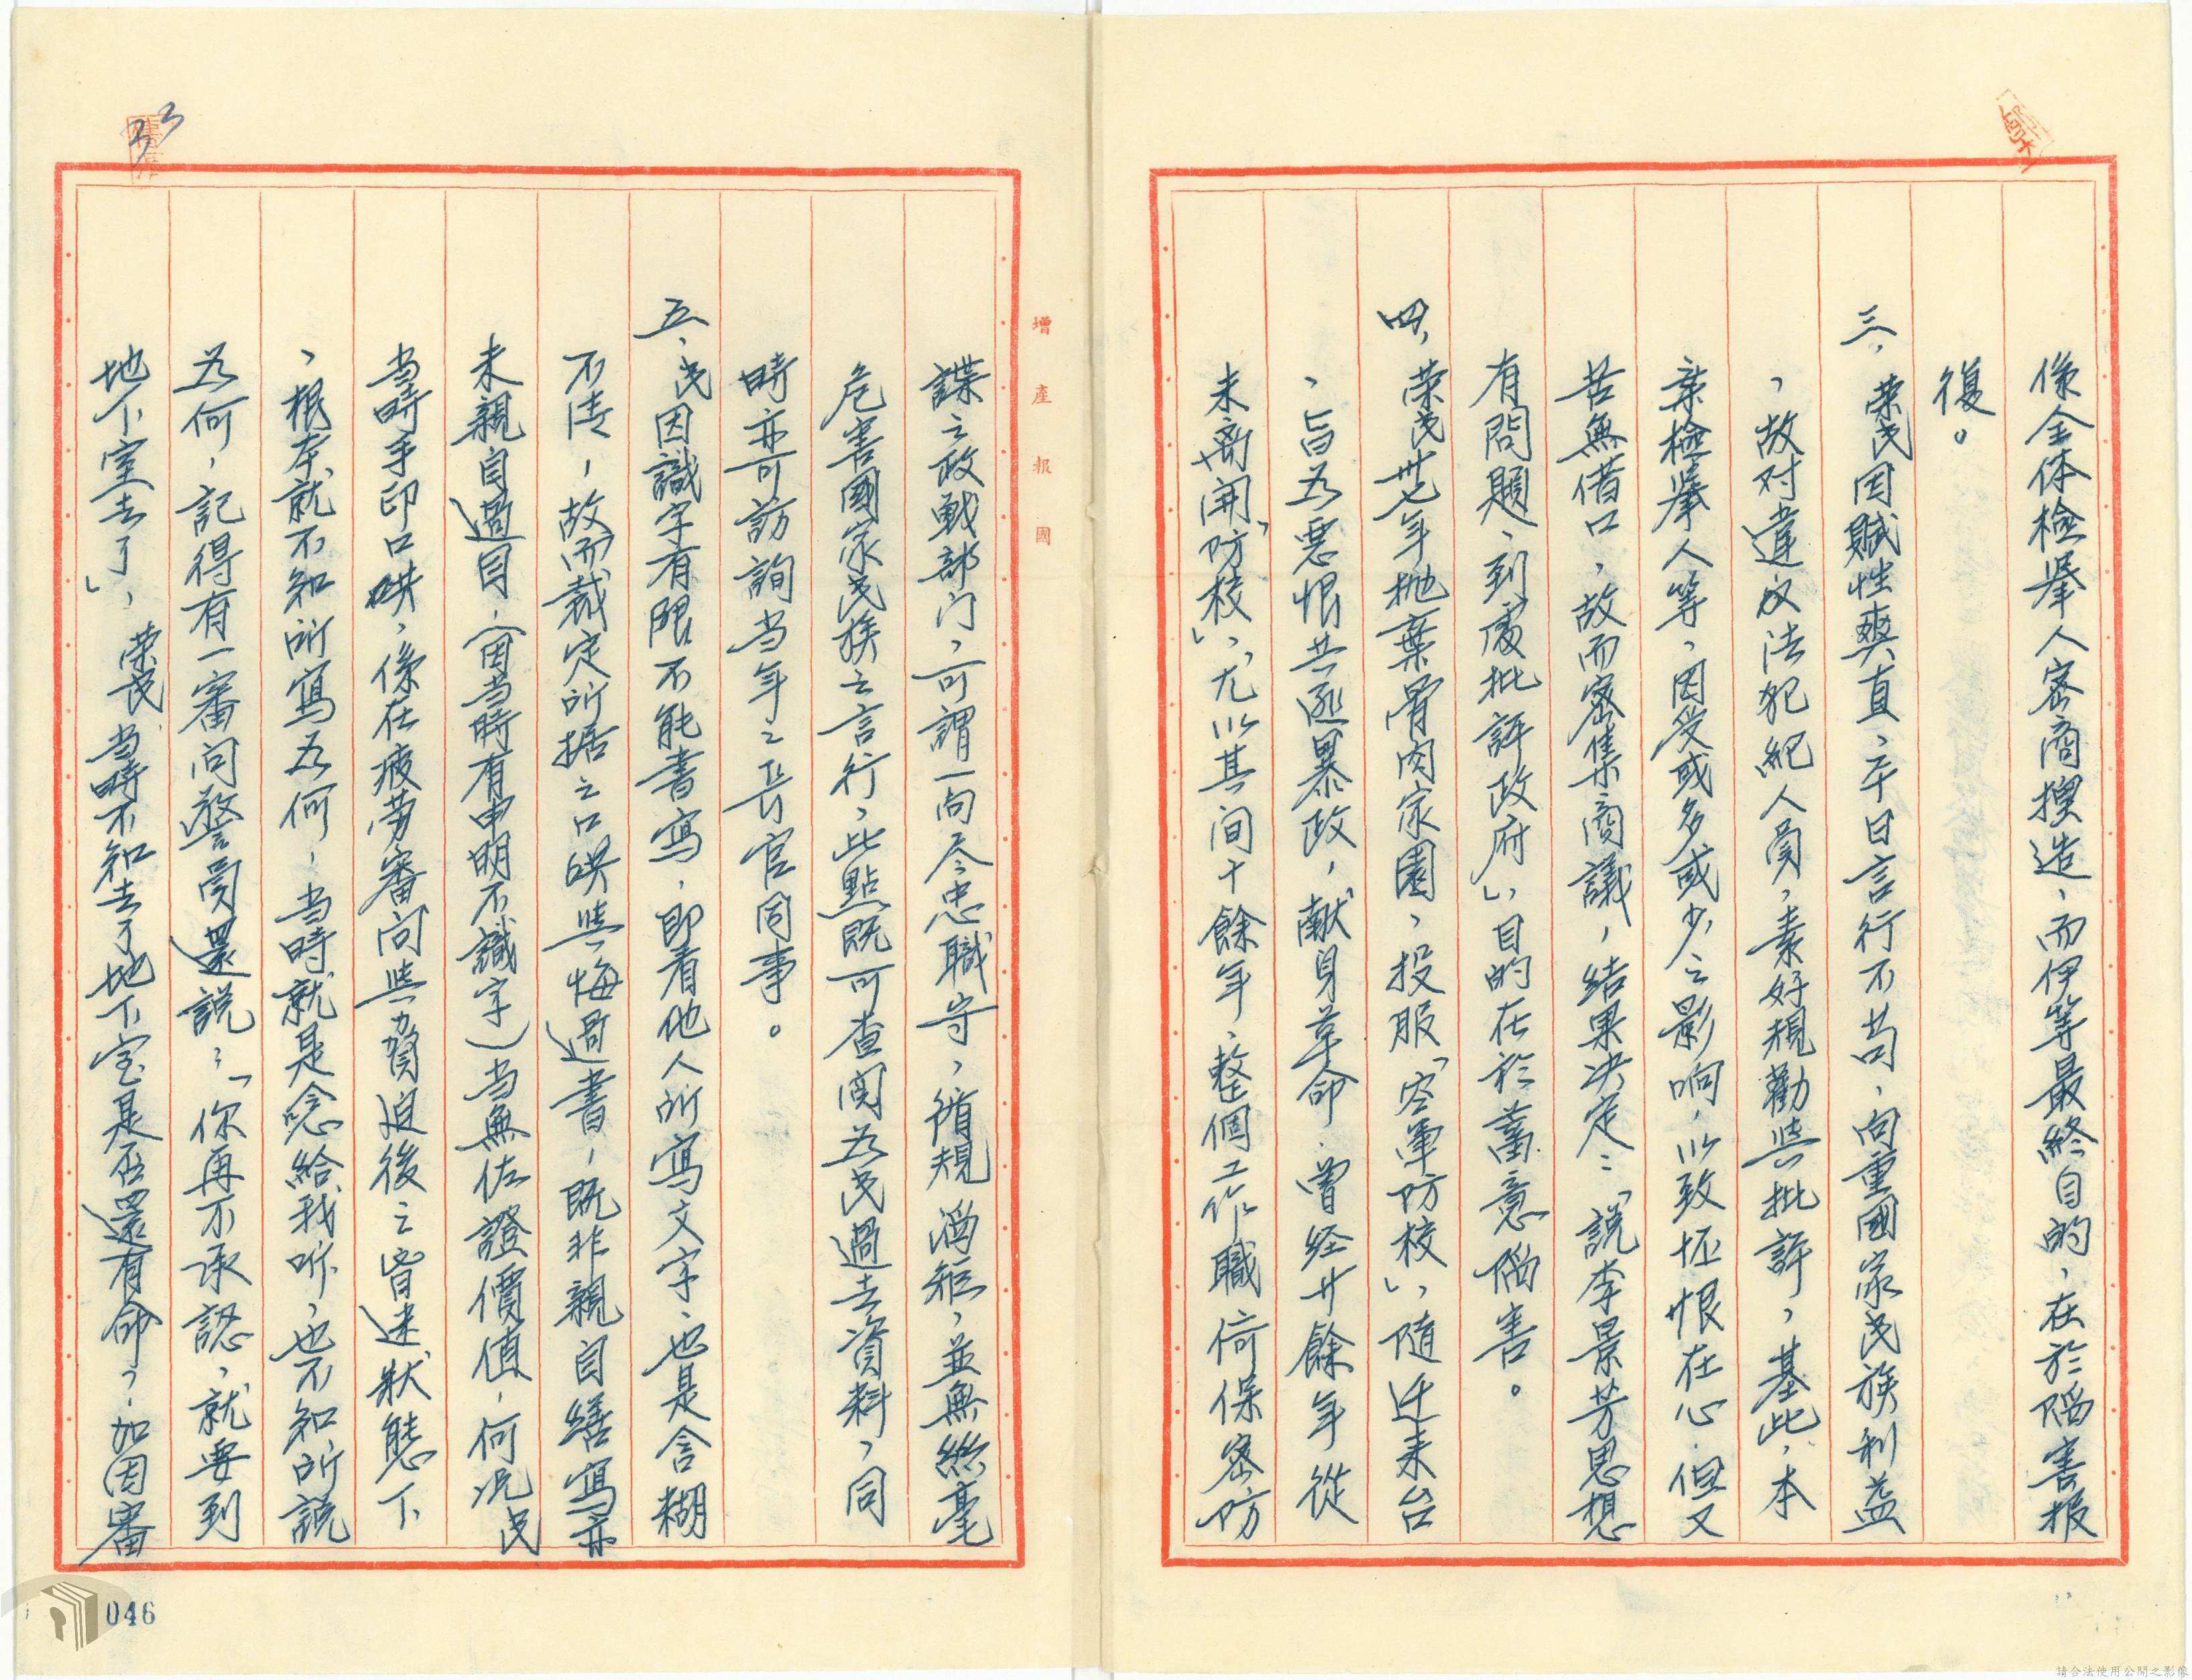 係全体檢舉人密商揑造，而伊等最終目的，在於陷害报
復。
三、荣民因賦性爽直，平日言行不苟，向重國家民族利益
，故对違反法犯紀人員，素好規勸與批評，基此，本
案檢舉人等，因受或多或少之影响，以致怀恨在心，但又
苦無借口，故而密集商議，结果决定：「說李景芳思想
有問題，到處批評政府」，目的在於蓄意陷害。
四、荣民卅七年抛棄骨肉家園，投服「空軍防校」，随迁来台
，旨为惡恨共匪暴政，献身革命，曾经廿餘年從
未离開「防校」，尤以其间十餘年，整個工作職倚保密防
諜之政戰部门，可謂一向尽忠職守，循規滔矩，並無絲毫
危害國家民族之言行，此點既可查閱为民過去資料，同
時亦可訪詢当年之長官同事。
五、民因識字有限不能書寫，即看他人所寫文字，也是含糊
不清，故而裁定所据之口供與悔過書，既非親自繕寫亦
未親自過目，（因当時有申明不識字）当無佐證價值，何况民
当時手印口供，係在疲劳審问與脅迫後之昏迷狀態下
，根本就不知所寫为何，当時就是唸給我听，也不知所説
为何，記得有一審问警員還說：「你再不承認，就要到
地下室去了」，荣民当時不知去了地下室是否還有命？加因審
增產报國
33
046
請合法使用公開之影像